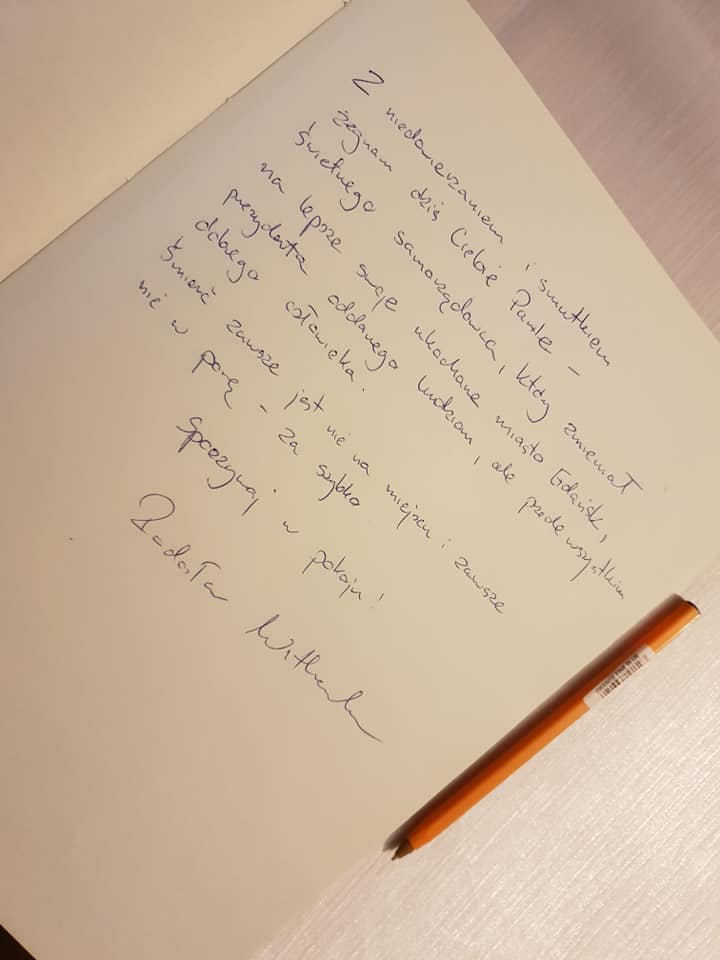 Z niedowierzaniem i smutkiem
żegnam dziś Ciebie Pawle -
świetnego samorządowca, który zmieniał
na lepsze swoje ukochane miasto Gdańsk,
prezydenta oddanego ludziom, ale przede wszystkim
dobrego człowieka.
Śmierć zawsze jest nie na miejscu i zawsze
nie w porę - za szybko
Spoczywaj w pokoju!
Radosła